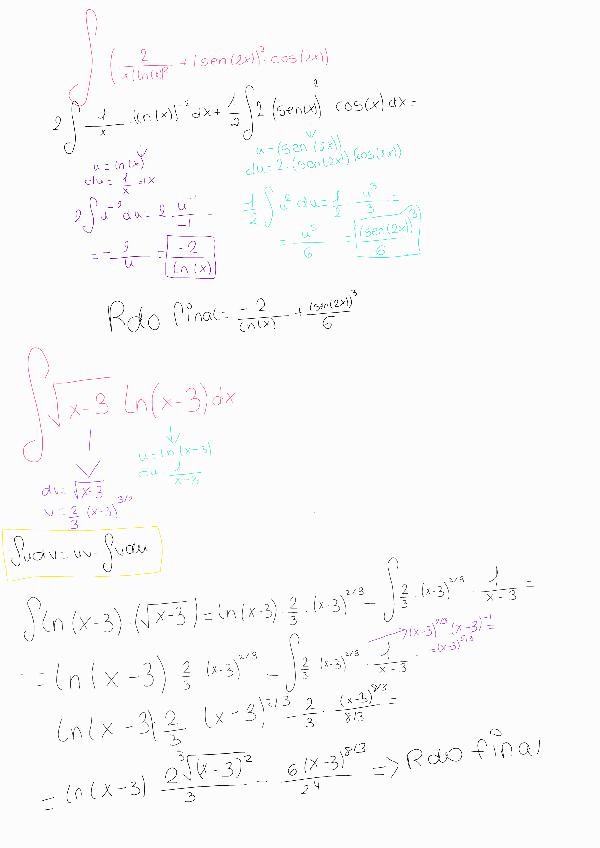 ∫ (2/(x(ln(x))² + (sen(2x))²·cos(2x))
2∫ 1/x (ln(x))⁻² dx + 1/2 ∫ 2 (sen(x))² cos(x) dx =
u = ln(x)
du = 1/x dx
u = (sen(2x))
du = 2·(sen(2x)) (cos(2x))
2∫ u⁻² du = 2·u⁻¹/-1 =
1/2 ∫ u² du = 1/2 · u³/3 =
= -2/u = -2/(ln(x))
= u³/6 = (sen(2x))³/6
Rdo final = -2/(ln(x)) + (sen(2x))³/6
∫ √x-3 ln(x-3) dx
u = ln(x-3)
du 1/(x-3)
dv = √x-3
v = 2/3 (x-3)^3/2
∫udv = uv - ∫vdu
∫ ln(x-3)·(√x-3) = ln(x-3)·2/3·(x-3)^2/3 - ∫ 2/3·(x-3)^2/3 · 1/(x-3) =
= ln(x-3) 2/3 (x-3)^2/3 - ∫ 2/3 (x-3)^2/3 · 1/(x-3)
ln(x-3) 2/3 (x-3)^2/3 - 2/3 · (x-3)^8/3 / 8/3 =
= ln(x-3) 2∛(x-3)²/3 - 6(x-3)^8/3 / 24 => Rdo final